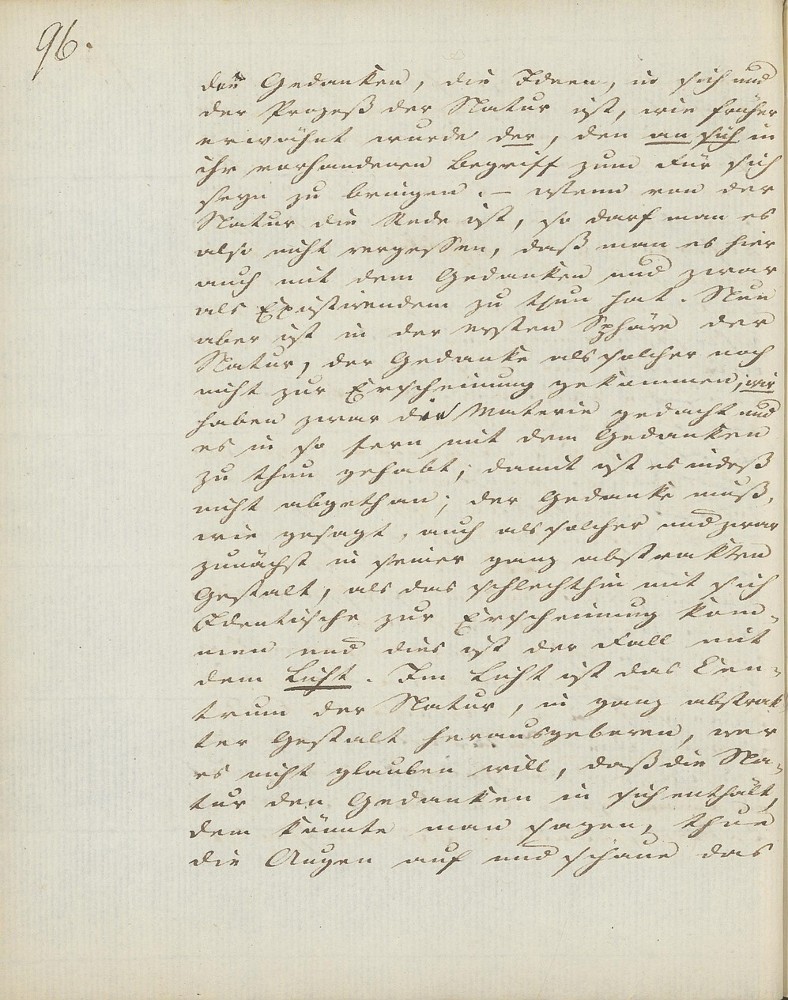 96.
den Gedanken, die Ideen, in sich und
der Prozeß der Natur ist, wie früher
erwähnt wurde der, den an sich in
ihr vorhandenen Begriff zum Für sich
seyn zu bringen. – Wenn von der
Natur die Rede ist, so darf man es
also nicht vergessen, daß man es hier
auch mit dem Gedanken und zwar
als Existirendem zu thun hat. Nun
aber ist in der ersten Sphäre der
Natur, der Gedanke als solcher noch
nicht zur Erscheinung gekommen; wir
haben zwar die Materie gedacht und
es in so fern mit dem Gedanken
zu thun gehabt; damit ist es indeß
nicht abgethan; der Gedanke muß,
wie gesagt, auch als solcher und zwar
zunächst in seiner ganz abstrakten
Gestalt, als das schlechthin mit sich
Identische zur Erscheinung kom-
men und dies ist der Fall mit
dem Licht. Im Licht ist das Cen-
trum der Natur, in ganz abstrak
ter Gestalt herausgeboren, wer
es nicht glauben will, daß die Na-
tur den Gedanken in sich enthält,
dem könnte man sagen, thue
die Augen auf und schaue das